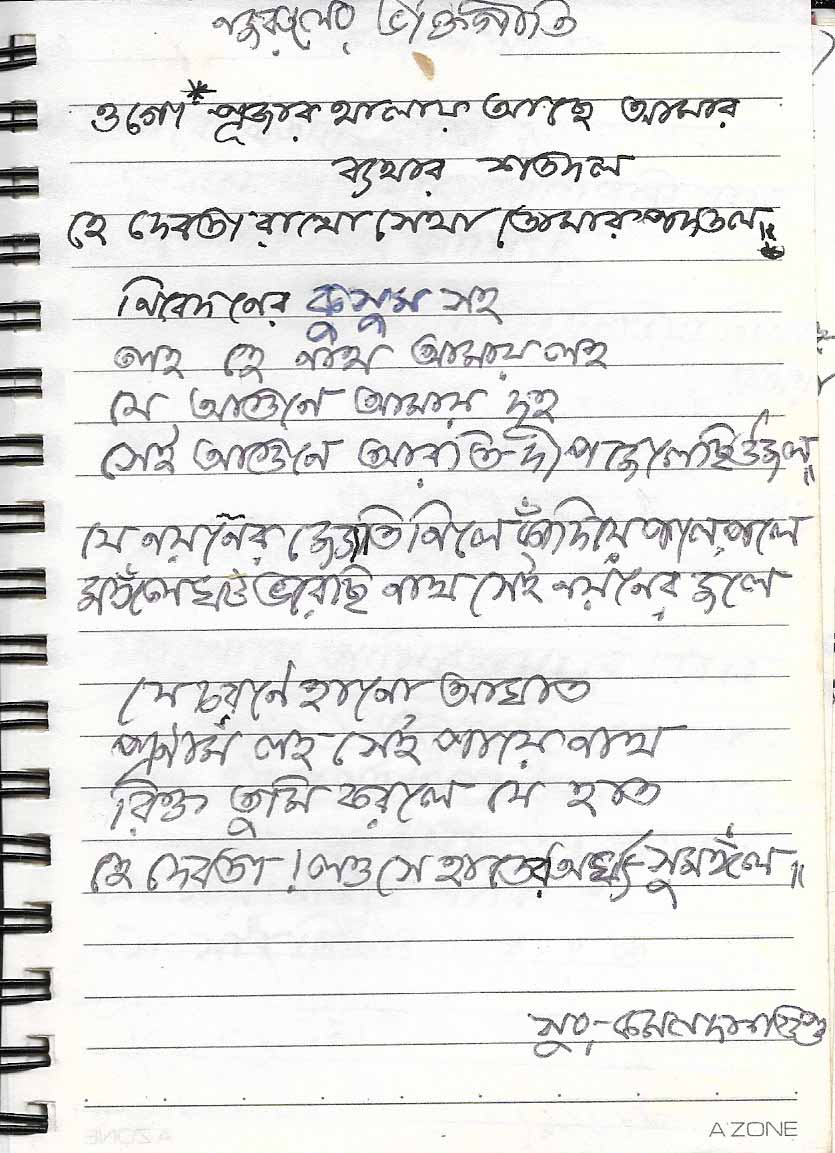 নজরুলের ভক্তিগীতি
ওগো * পূজার থালায় আছে আমার
ব্যথার শতদল
হে দেবতা রাখো সেথা তোমার পদতল॥ *
নিবেদনের কুসুম সহ
লহ হে নাথ আমায় লহ
যে আগুনে আমায় দহ
সেই আগুনে আরতি-দীপ জ্বেলেছি উজল॥
যে নয়নের জ্যোতি নিলে কাঁদিয়ে পলে পলে
মঙ্গল ঘট ভরেছি নাথ সেই নয়নের জলে
যে চরণে হানো আঘাত
প্রণাম লহ সেই পায়ে নাথ
রিক্ত তুমি করলে যে হাত
হে দেবতা! লও সে হাতের অর্ঘ্য-সুমঙ্গল॥
সুর-কমল দাশগুপ্ত
A'ZONE